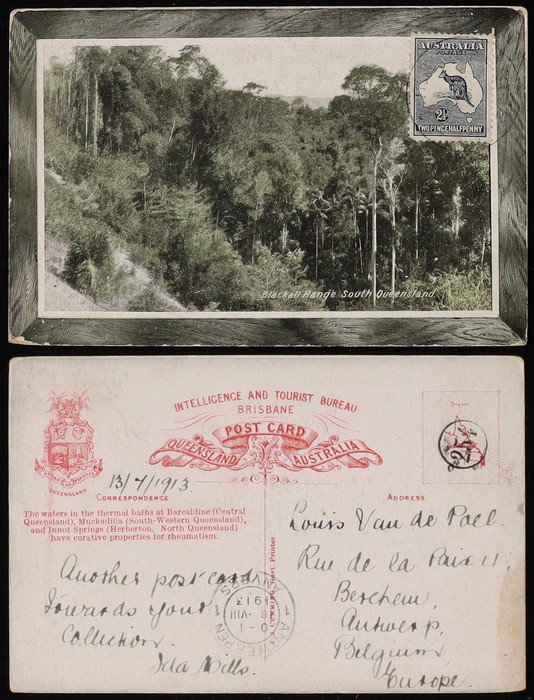 AUSTRALIA
POSTAGE
2½
TWO PENCE HALFPENNY
Blackall Range South Queensland
INTELLIGENCE AND TOURIST BUREAU
BRISBANE
POST CARD
QUEENSLAND AUSTRALIA
QUEENSLAND
Stamp
13/7/1913.
CORRESPONDENCE
ADDRESS
The waters in the thermal baths at Barcaldine (Central
Queensland), Muckadilla (South-Western Queensland),
and Innot Springs (Herberton, North Queensland)
have curative properties for rheumatism.
Another post card
towards your
Collection.
Ida Mills.
CUMMING, Govt. Printer
1 ANTWERPEN 1
ANVERS
0-1
8 VIII
1913
Louis Van de Poel.
Rue de la Paix 4.
Berchem,
Antwerp,
Belgium
Europe.